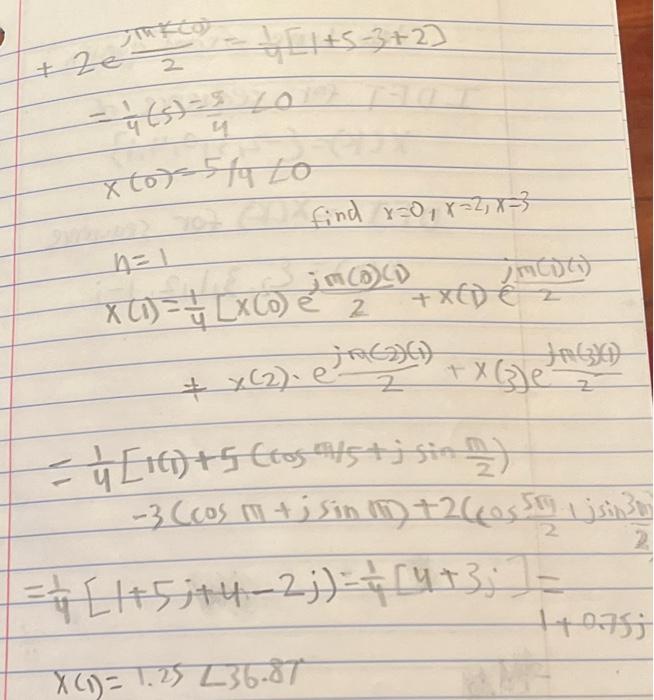 + 2e^(jπ×(0)/2) = 1/4 [1+5-3+2]
= 1/4 (5) = 5/4 ∠0
x(0) = 5/4 ∠0
find x=0, x=2, x=3
n=1
x(1) = 1/4 [x(0) e^(jπ(0)(1)/2) + x(1) e^(jπ(1)(1)/2)
+ x(2)· e^(jπ(2)(1)/2) + x(3) e^(jπ(3)(1)/2)
= 1/4 [1(1)+5 (cos π/5 + j sin π/2)
-3 (cos π + j sin π) + 2(cos 5π/2 + j sin 3π/2
= 1/4 [1+5j+4-2j) = 1/4 [4+3j] =
1+0.75j
x(1) = 1.25 ∠36.87